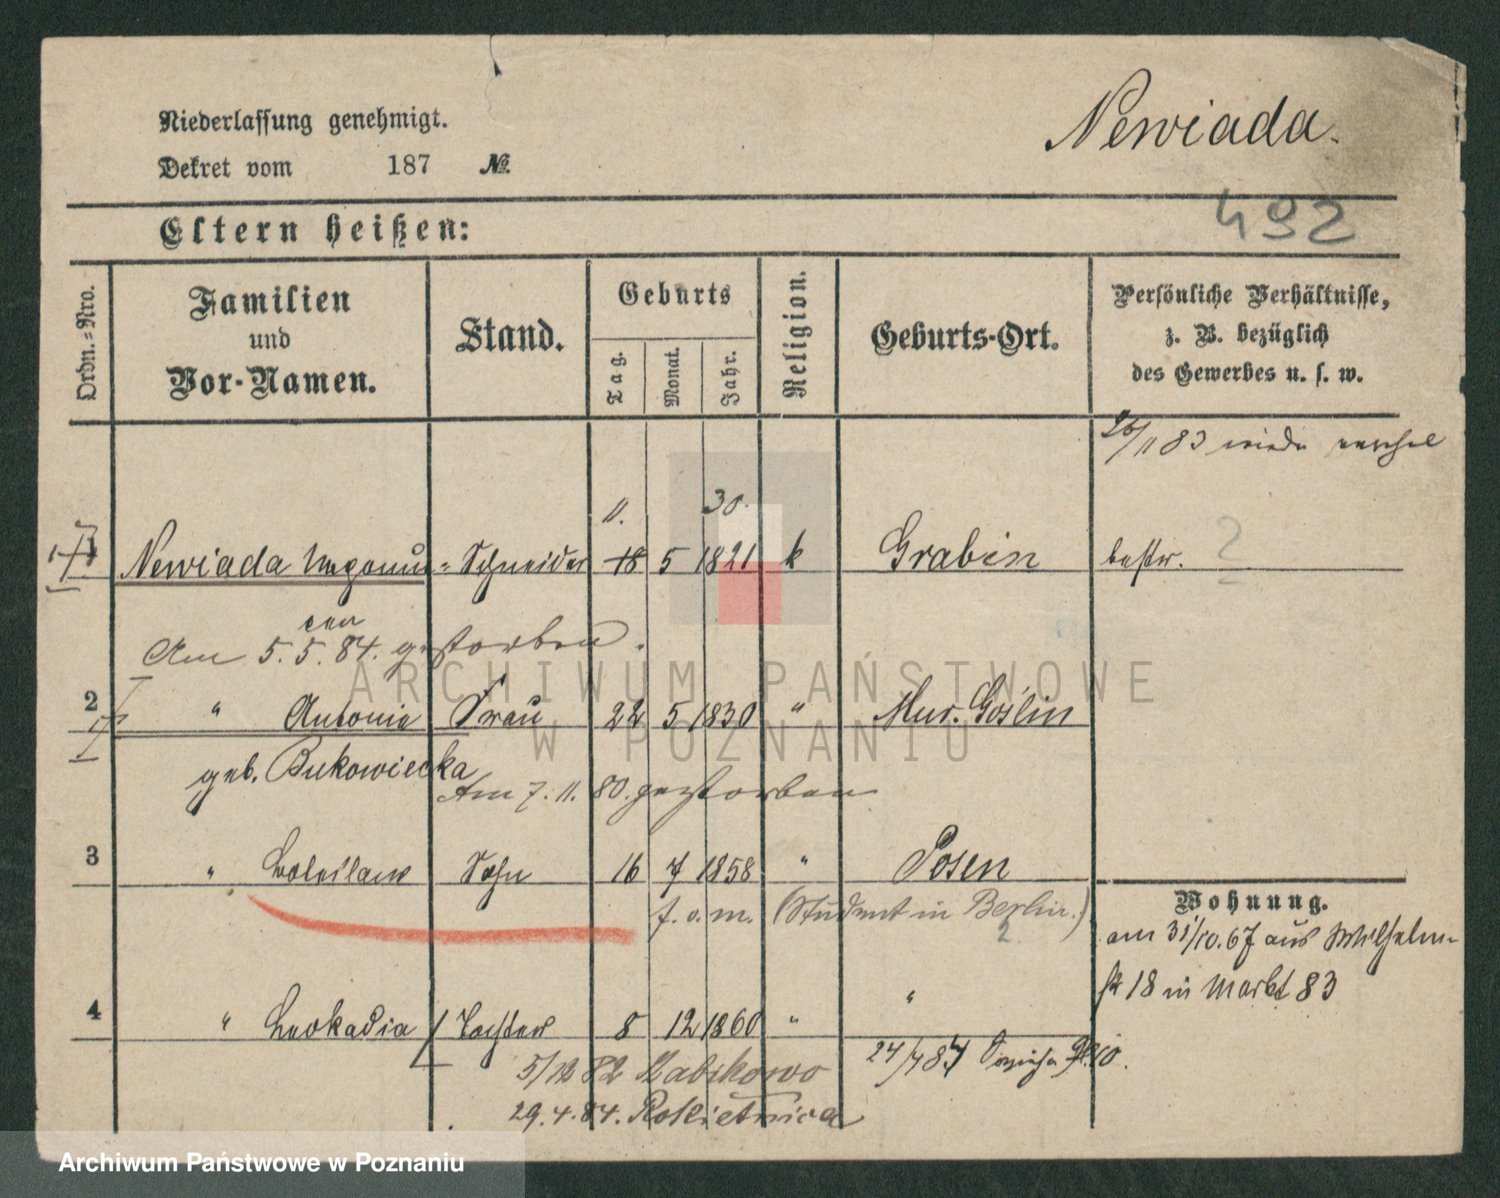 Niederlassung genehmigt.
Newiada.
Dekret vom 187 No.
Eltern heißen:
492
Ordn.=Nro.
Familien
und
Vor-Namen.
Stand.
Geburts
Tag.
Monat.
Jahr.
Religion.
Geburts-Ort.
Persönliche Verhältnisse,
z. B. bezüglich
des Gewerbes u. s. w.
26/11 83
11. 30.
1 Newiada Schneider 18 5 1821 k Grabin bestr. ?
Am 5.5.84. gestorben.
2 " Antonie Frau 22 5 1830 " Mur. Goślin
geb. Bukowiecka
Am 7.11.80. gestorben
3 " Sohn 16 7 1858 " Posen
f. o. m. (Student in Berlin.)
2
Wohnung.
am 31/10.67 aus Wilhelm-
str 18 in Markt 83
4 " Leokadia Tochter 8 12 1860 " "
5/12 82 Zabikowo
29.4.84. Rokietnica
ARCHIWUM PAŃSTWOWE
W POZNANIU
Archiwum Państwowe w Poznaniu